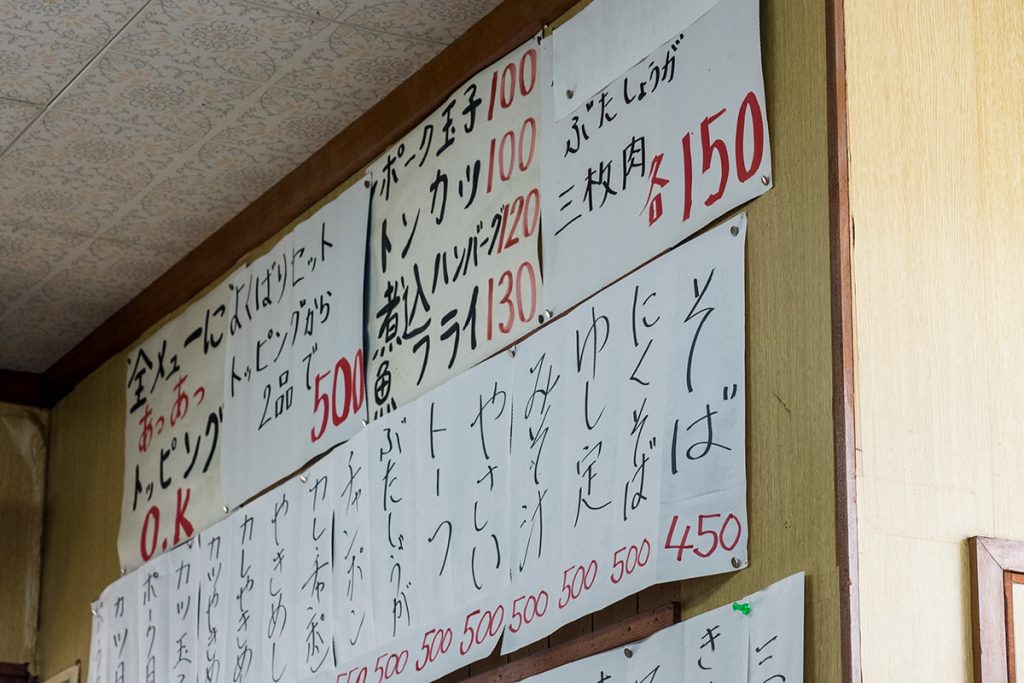 全メニューに
あっあっ
トッピング
O.K
よくばりセット
トッピングから
2品で
500
ポーク玉子100
トンカツ100
煮込ハンバーグ120
魚フライ130
ぶたしょうが
三枚肉 各150
そば 450
にくそば 500
ゆし定 500
みそ汁 500
やさい 500
トーフ 500
ぶたしょうが 500
チャンポン
やきめし
カレやきめ
カツやきめ
カツ玉
ポーク
カツ